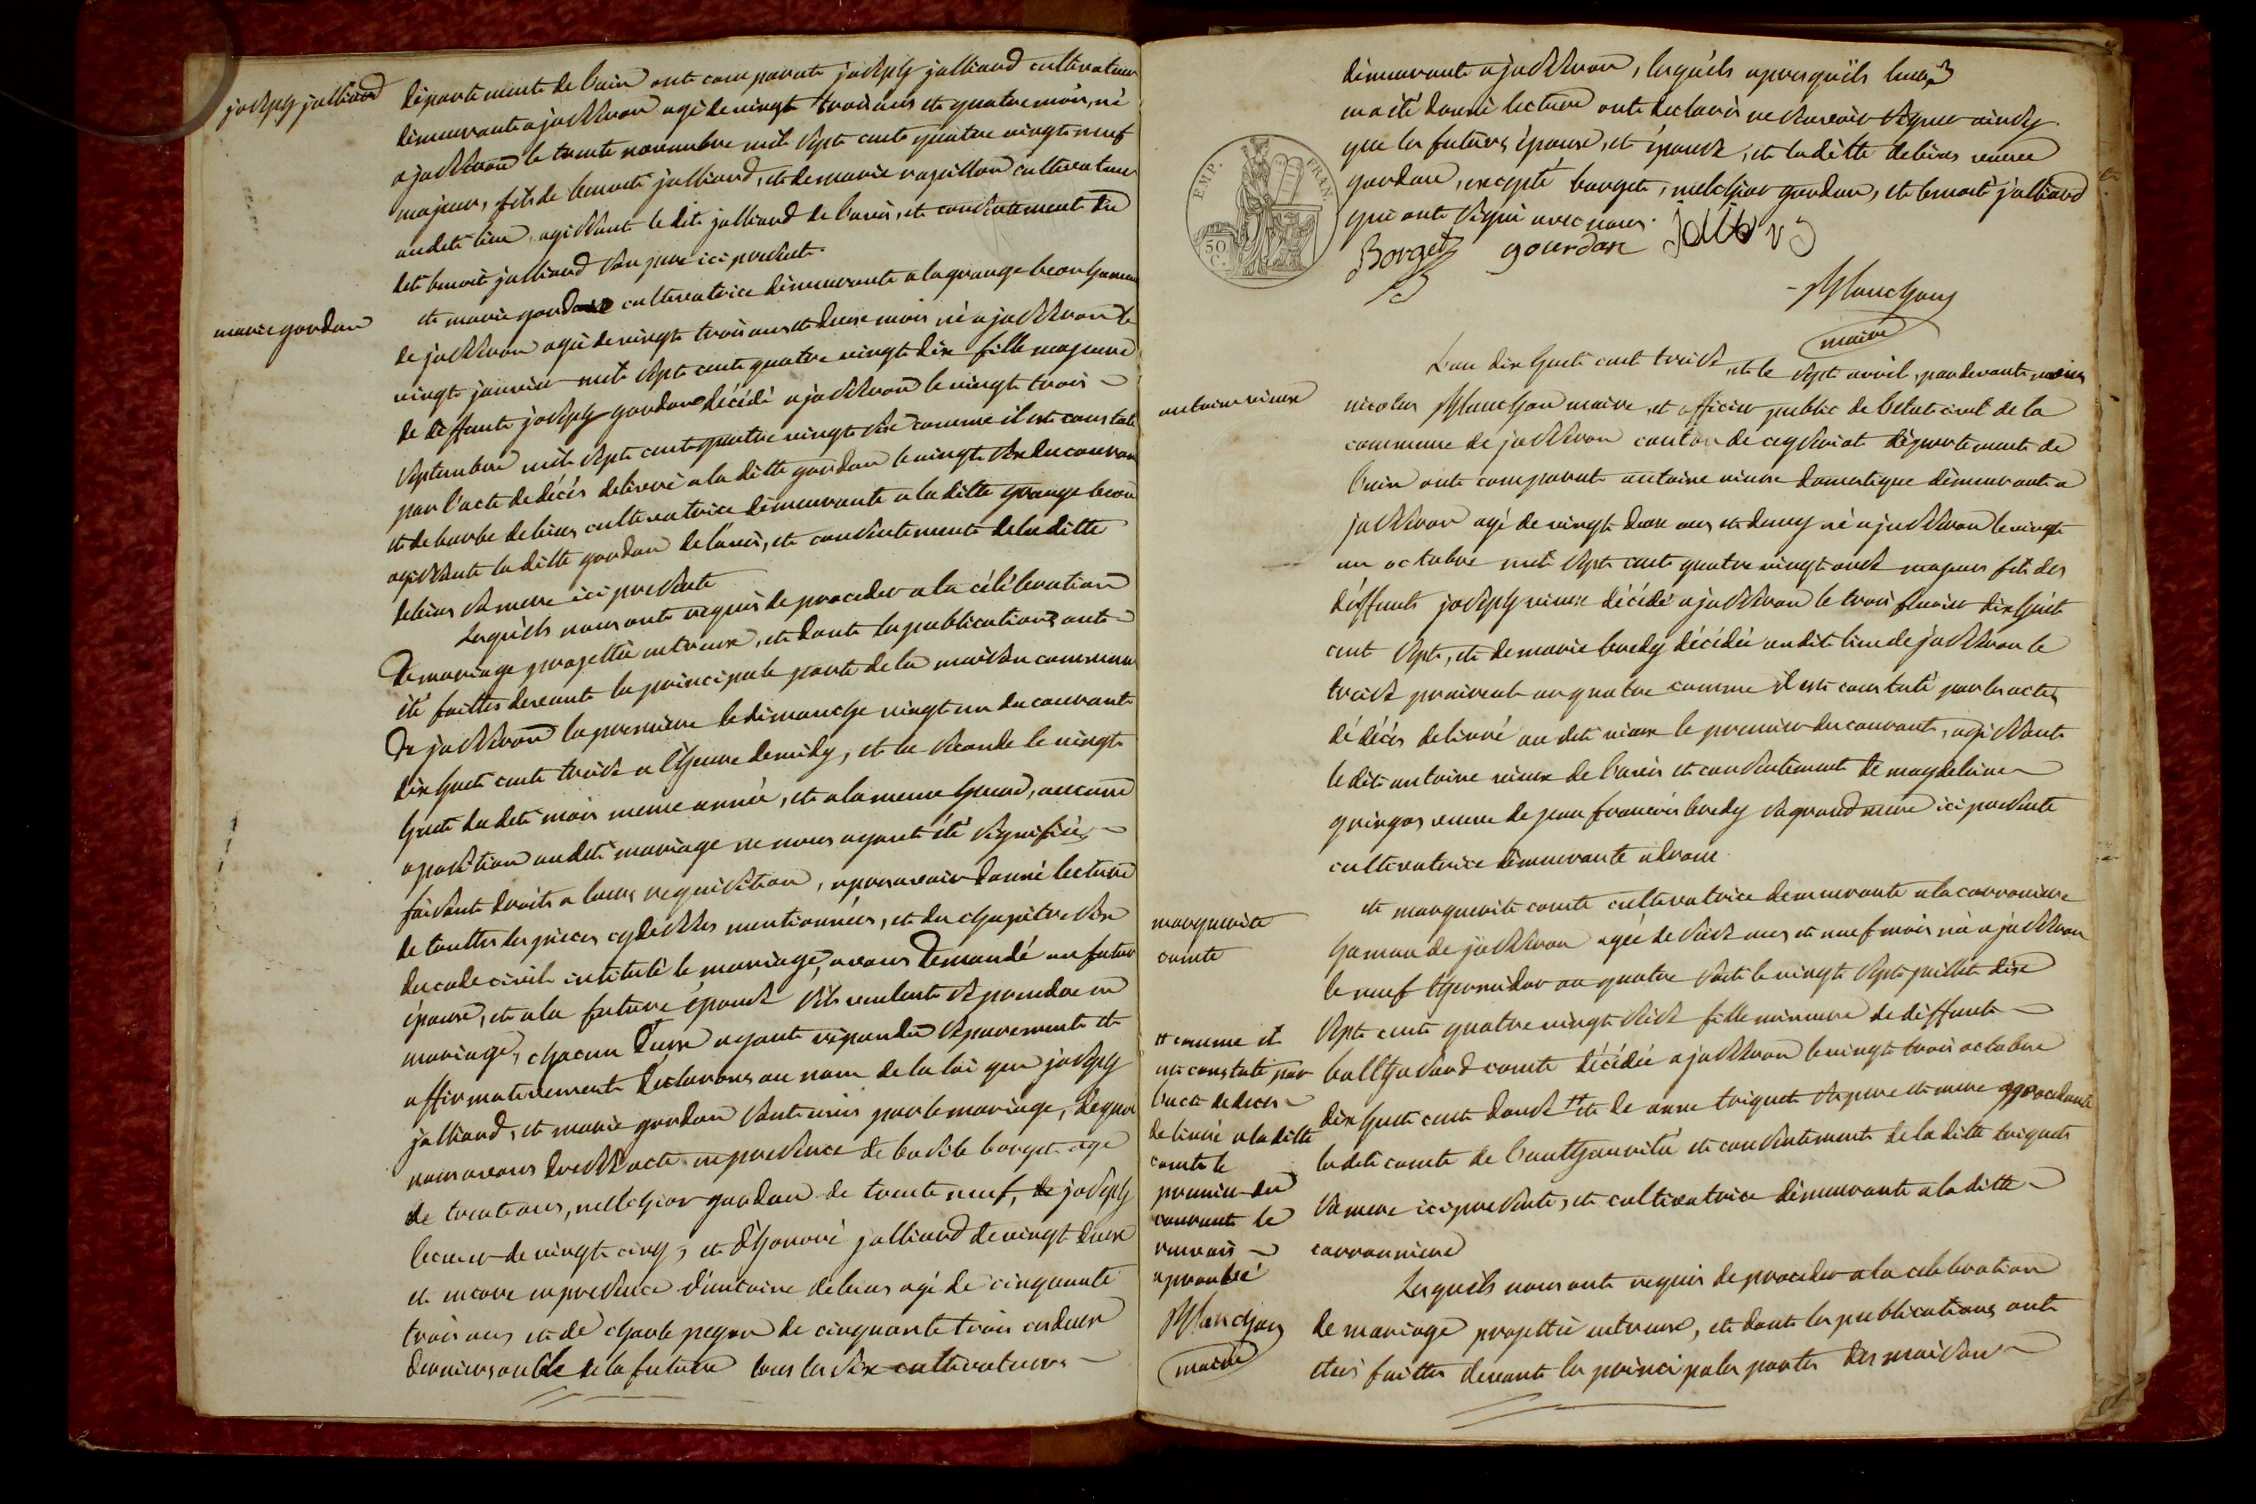 joseph jalliard
département de l'ain ont comparut joseph jalliard cultivateur
demeurante a jasseron agé de vingt trois ans et quatre mois, né
a jasseron le trente novembre mil sept cent quatre vingt neuf
majeur, fils de benoit jalliard, et de marie rapillon cultivateur
audit lieu agissant le dit jalliard de l'avis, et consentement du
dit benoit jalliard son pere ici present.
marie gordan
et marie gordan cultivatrice demeurante a la grange hameau
de jasseron agée de vingt trois ans et deux mois né a jasseron le
vingt janvier mil sept cent quatre vingt dix fille majeure
de deffunt joseph gordan décédé a jasseron le vingt trois
septembre mil sept cent quatre vingt six comme il est constaté
par l'acte de décés delivré a la ditte gordan le vingt six du courant
et de barbe debias cultivatrice demeurante a la ditte grange
agissante la ditte gordan de l'avis, et consentement de la ditte
debias sa mere ici presente
Lesquels nous ont requis de proceder a la célébration
De mariage projettée entreux, et dont les publications ont
été faittes devant la principale porte de la maison commune
De jasseron la premiere le dimanche vingt un du courant
dix huit cent treize a l'heure de midy, et la seconde le vingt
huit du dit mois meme année, et a la meme heure, aucune
oposition au dit mariage ne nous ayant été signifiée
faisant droit a leur requisition, apres avoir donné lecture
de touttes les pieces cy dessus mentionnées, et du chapitre six
du code civil intitulé le mariage, avons demandé au futur
époux, et a la future épouse s'ils veulent se prendre en
mariage, chacun d'eux ayant répondu separement et
affirmativement Déclarons au nom de la loi que joseph
jalliard, et marie gordan sont unis par le mariage, de quoi
nous avons dressé acte en presence de basile borget agé
de trente ans, melchior gordan de trente neuf, de joseph
de vingt cinq, et d'honoré jalliard de vingt deux
et encore en presence d'antoine debias agé de cinquante
trois ans et de charle de cinquante trois ces deux
derniers oncle de la future tous les six cultivateurs
demeurante a jasseron, lesquels apres qu'ils leur
en a été donné lecture ont declarés ne savoir signer ainsy
que les futurs époux, et épouse, et la ditte debias veuve
gordan, excepté borget, melchior gordan, et benoit jalliard
qui ont signé avec nous.
EMP. FRAN.
50 C.
Borget gourdan
maire
antoine vieux
L'an dix huit cent treize, et le sept avril, pardevant nous
nicolas maire et officier public de l'etat civil de la
commune de jasseron canton de ceyseriat département de
l'ain ont comparut antoine vieux domestique demeurant a
jasseron agé de vingt deux ans et demy né a jasseron le vingt
un octobre mil sept cent quatre vingt onze majeur fils des
déffunts joseph vieux décédé a jasseron le trois fevrier dix huit
cent sept, et de marie décédée au dit lieu de jasseron le
treize praireal an quatre comme il est constaté par les actes
dé décés delivré au dit vieux le premier du courant, agissant
le dit antoine vieux de l'avis et consentement de magdeleine
veuve de jean francois sa grand mere ici presente
cultivatrice demeurante a
marguerite
comte
et marguerite comte cultivatrice demeurante a la carroniere
hameau de jasseron agée de seize ans et neuf mois né a jasseron
le neuf thermidor an quatre soit le vingt sept juillet dix
sept cent quatre vingt seize fille mineure de deffunt
balthasard comte décédé a jasseron le vingt trois octobre
dix huit cent douze ## et de anne triquet ses pere et mere procedante
la dite comte de l'authaurité et consentement de la ditte triquet
sa mere ici presente, et cultivatrice demeurante a la ditte
carronniere
## comme il
est constaté par
l'acte de deces
delivré a la ditte
comte le
premier du
courant le
renvois
aprouvé
maire
Lesquels nous ont requis de proceder a la celebration
de mariage projettée entreux, et dont les publications ont
étés faittes devant les principales portes des maison